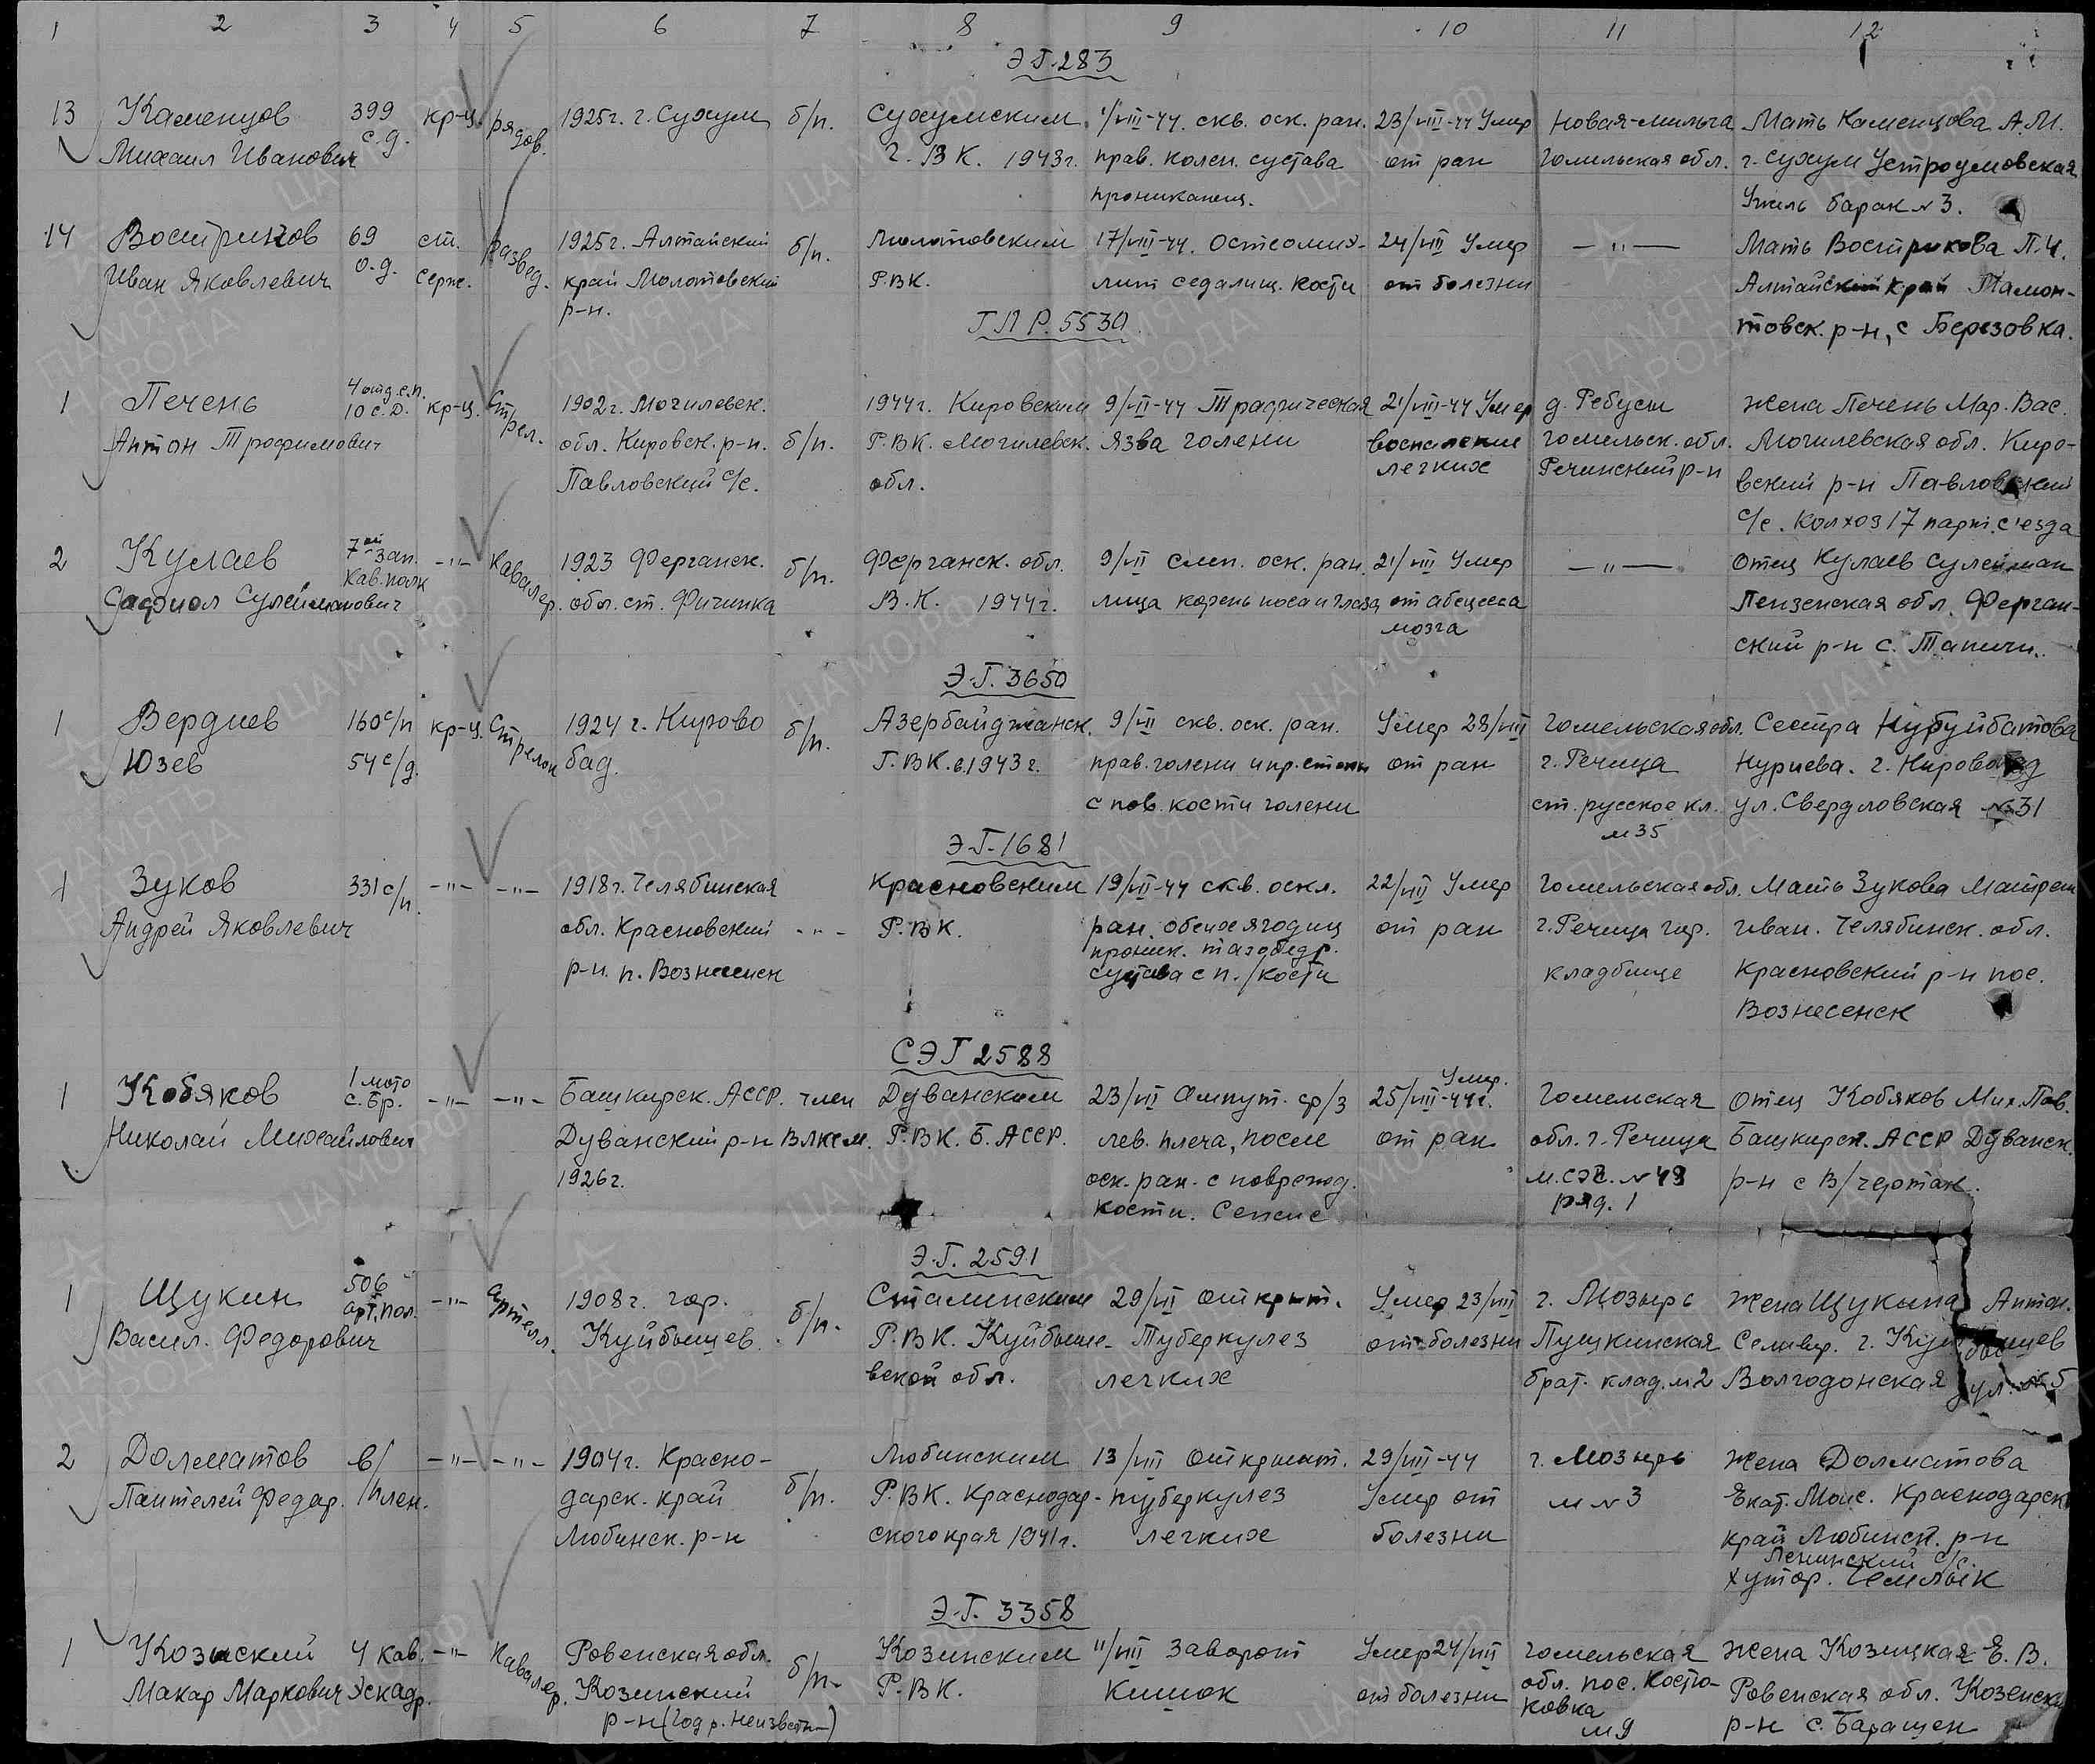 1 2 3 4 5 6 7 8 9 10 11 12
Э.Г. 283
13 Каменцов 399 кр-ц. рядов. 1925г. г. Сухум б/п. Сухумским 1/VIII-44. скв. оск. ран. 23/VIII-44 Умер Новая-мильча Мать Каменцова А.М.
Михаил Иванович с.д. Г.ВК. 1943г. прав. колен. сустава от ран Гомельская обл. г. Сухум
проникающ. барак №3.
14 Востриков 69 ст. развед. 1925г. Алтайский б/п. Молотовским 17/VIII-44. Остеомиэ- 24/VIII Умер —"— Мать Вострикова П.Ч.
Иван Яковлевич о.д. серж. край Молотовский Р.ВК. лит седалищ. кости от болезни Алтайский край Мамон-
р-н. товск. р-н, с Березовка.
ГЛР. 5530
1 Печень 4 отд.с.п. 10 с.д. кр-ц. Стрел. 1902г. Могилевск. 1944г. Кировским 9/VII-44 Трафическая 21/VIII-44 Умер д. Ребуси жена Печень Мар. Вас.
Антон Трофимович обл. Кировск. р-н. б/п. Р.ВК. Могилевск. язва голени воспаление Гомельск. обл. Могилевская обл. Киро-
Павловский с/с. обл. легких Речинский р-н вский р-н Павловский
с/с. колхоз 17 парт. с'езда
2 Кулаев 7ой зап. —"— Кавалер. 1923 Ферганск. б/п. Ферганск. обл. 9/VII слеп. оск. ран. 21/VIII Умер —"— отец Кулаев Сулейман
Сафиол Сулейманович кав. полк обл. ст. Фичинка В.К. 1944г. лица корень носа и глаза от абсцесса Пензенская обл. Ферган-
мозга ский р-н с. Тапичи.
Э.Г. 3650
1 Вердиев 160 с/п кр-ц. Стрелок 1924 г. Кирово б/п. Азербайджанск. 9/VII скв. оск. ран. Умер 28/VIII Гомельская обл. Сестра
Юзев 54 с/д. бад. Г.ВК. в 1943г. прав. голени и пр. стопы от ран г. Речица Нуриева. г. Кировобад
с пов. кости голени ст. русское кл. ул. Свердловская №31
м 35
Э.Г. 1681
1 Зуков 331 с/п. —"— —"— 1918г. Челябинская Красновским 19/VII-44 скв. оскл. 22/VIII Умер Гомельская обл. Мать Зукова Матрен
Андрей Яковлевич обл. Красновский -"- Р.ВК. ран. обеих ягодиц от ран г. Речица гор. Иван. Челябинск. обл.
проник. тазобедр.
р-н. п. Вознесенск сустава с п./кости кладбище Красновский р-н пос.
Вознесенск
СЭГ 2588
1 Кобяков 1 мото с.бр. —"— —"— Башкирск. АССР. член Дуванским 23/VII Ампут. ср/з 25/VIII-44г. Умер. Гомелская отец Кобяков Мих. Пав.
Николай Михайлович Дуванский р-н ВЛКСМ. Р.ВК. Б. АССР. лев. плеча, после от ран обл. г. Речица Башкирск. АССР Дуванск.
1926г. оск. ран. с поврежд. №48 р-н с В/чертан.
кости. Сепсис ряд. 1
Э.Г. 2591
1 Щукин 506 —"— артелл. 1908г. гор. б/п. Сталинским 29/VII открыт. Умер 23/VIII г. Мозырь жена Щукына Антон.
Васил. Федорович арт. пол. Куйбышев. Р.ВК. Куйбыше- Туберкулез от болезни Пушкинская Селивер. г. Куйбышев
вской обл. легких брат. клад. м2 Волгодонская ул. №5
2 Долматов в/плен. —"— —"— 1904г. Красно- б/п. Любинским 13/VIII открыт. 29/VIII-44 г. Мозырь жена Долматова
Пантелей Федар. дарск. край Р.ВК. Краснодар- туберкулез Умер от м №3 Екат. Моис. Краснодарск
Любинск. р-н ского края 1941г. легких болезни край Любинск. р-н
Ленинский с/с.
хутор. Чемлык
Э.Г. 3358
1 Козинский 4 кав. —"— Кавалер. Ровенская обл. б/п. Козинским 11/VIII Заворот Умер 24/VIII Гомельская жена Козицкая Е.В.
Макар Маркович эскадр. Козинский Р.ВК. Кишок от болезни обл. пос. Костю- Ровенская обл. Козенск
р-н (год р. неизвестн—) ковка р-н с. Баращен
м 9
ПАМЯТЬ НАРОДА
ЦАМО.РФ